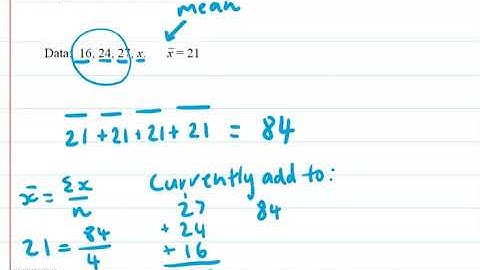 mean
Data: 16, 24, 27, x, x̄ = 21
21 + 21 + 21 + 21 = 84
x̄ = Σx/n
21 = 84/4
Currently add to:
27
84
+ 24
+ 16